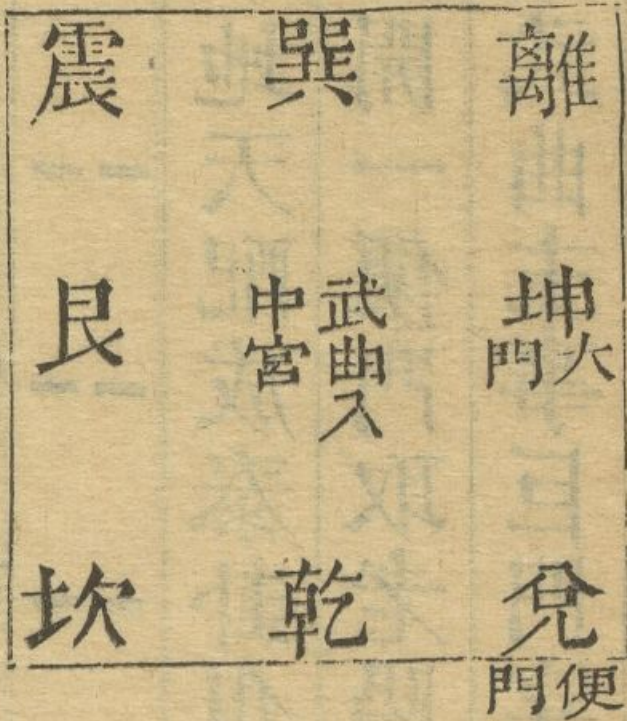 離
坤大門
兌
便門
巽
武曲入中宮
乾
震
艮
坎